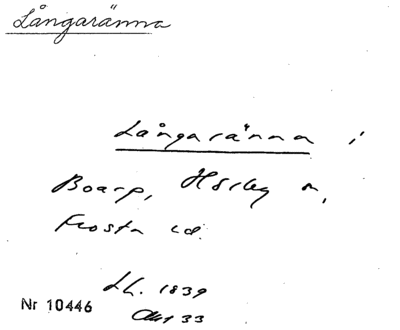 Långaränna
Långaränna i
Boarp, Hörby sn,
Frosta hd.
Lh. 1839
Akt 33
Nr 10446